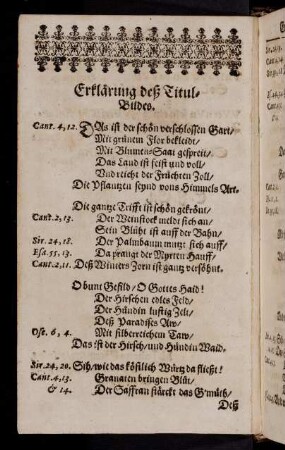 Erklärung deß Titul-
Bildes.
Cant. 4, 12. DAs ist der schön verschlossen Gart/
Mit grünem Flor bekleidt/
Mit Blumen-Saat gespreit/
Das Land ist feist und voll/
Und reicht der Früchten Zoll/
Die Pflantzen seynd vons Himmels Art.
Die gantze Trifft ist schön gekrönt/
Cant. 2, 13. Der Weinstock meldt sich an/
Sein Blüht ist auff der Bahn/
Sir. 24, 18. Der Palmbaum mutzt sich auff/
Esa. 55, 13. Da prangt der Myrten Hauff/
Cant. 2, 11. Deß Winters Zorn ist gantz versöhnt.
O bunt Gefild/ O Gottes Haid!
Der Hirschen edles Feld/
Der Hündin lustig Zelt/
Deß Paradises Aw/
Ose. 6, 4. Mit silberreichem Taw/
Das ist der Hirsch/ und Hündin Waid.
Sir. 24, 20. Sih/ wie das köstlich Würtz da fließt!
Cant. 4, 13. Granaten bringen Blüt/
& 14. Der Saffran stärckt das G'müth/
Deß